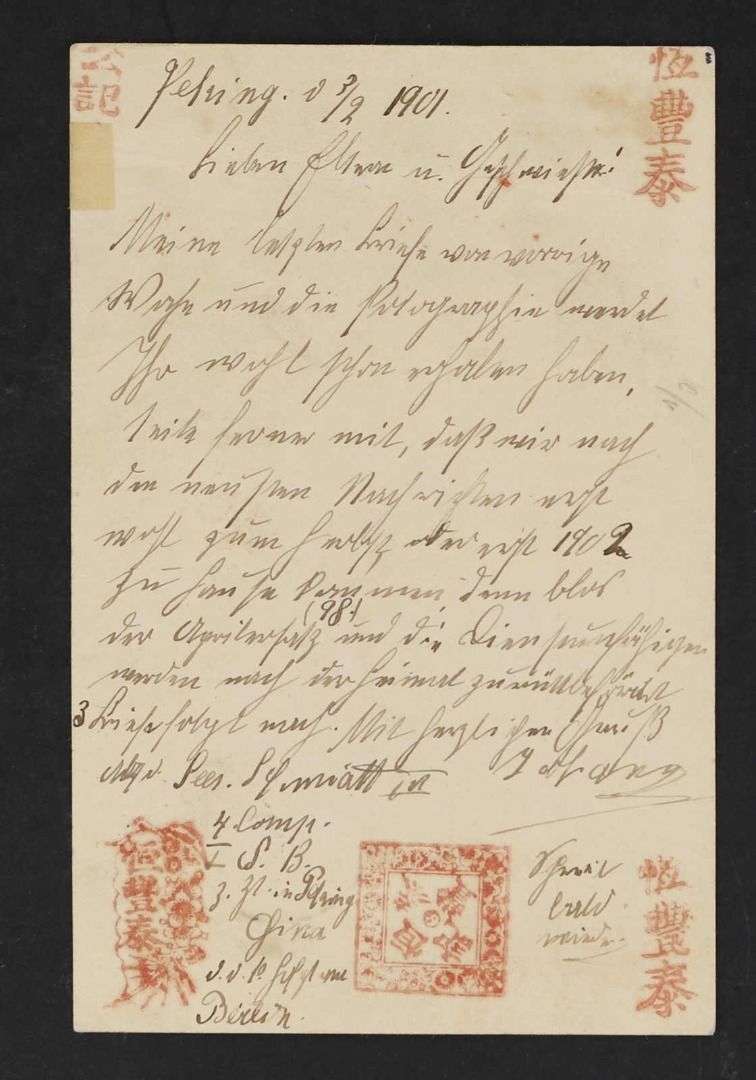 公記
恆豐泰
Peking. d 3/2 1901.
Lieben Eltern u. Geschwister!
Meine letzten Briefe von vorrige
Woche und die Potographie werdet
Ihr wohl schon erhalen haben,
teile ferner mit, daß wir nach
den neusten Nachrichten erst
wohl zum Herbst oder erst 1902
zu Hause kommen denn blos
(98.)
der Aprilersatz und die Dienstunfähigen
werden nach der Heimat zurückbefördert
3 Briefe folgt nach. Mit herzlichen Gruß
Sees. Schmidt
4 Comp.
I S. B.
z. Zt. in Peking
China
Berlin.
Schreibt
bald
wieder.
恆豐泰
恆豐泰